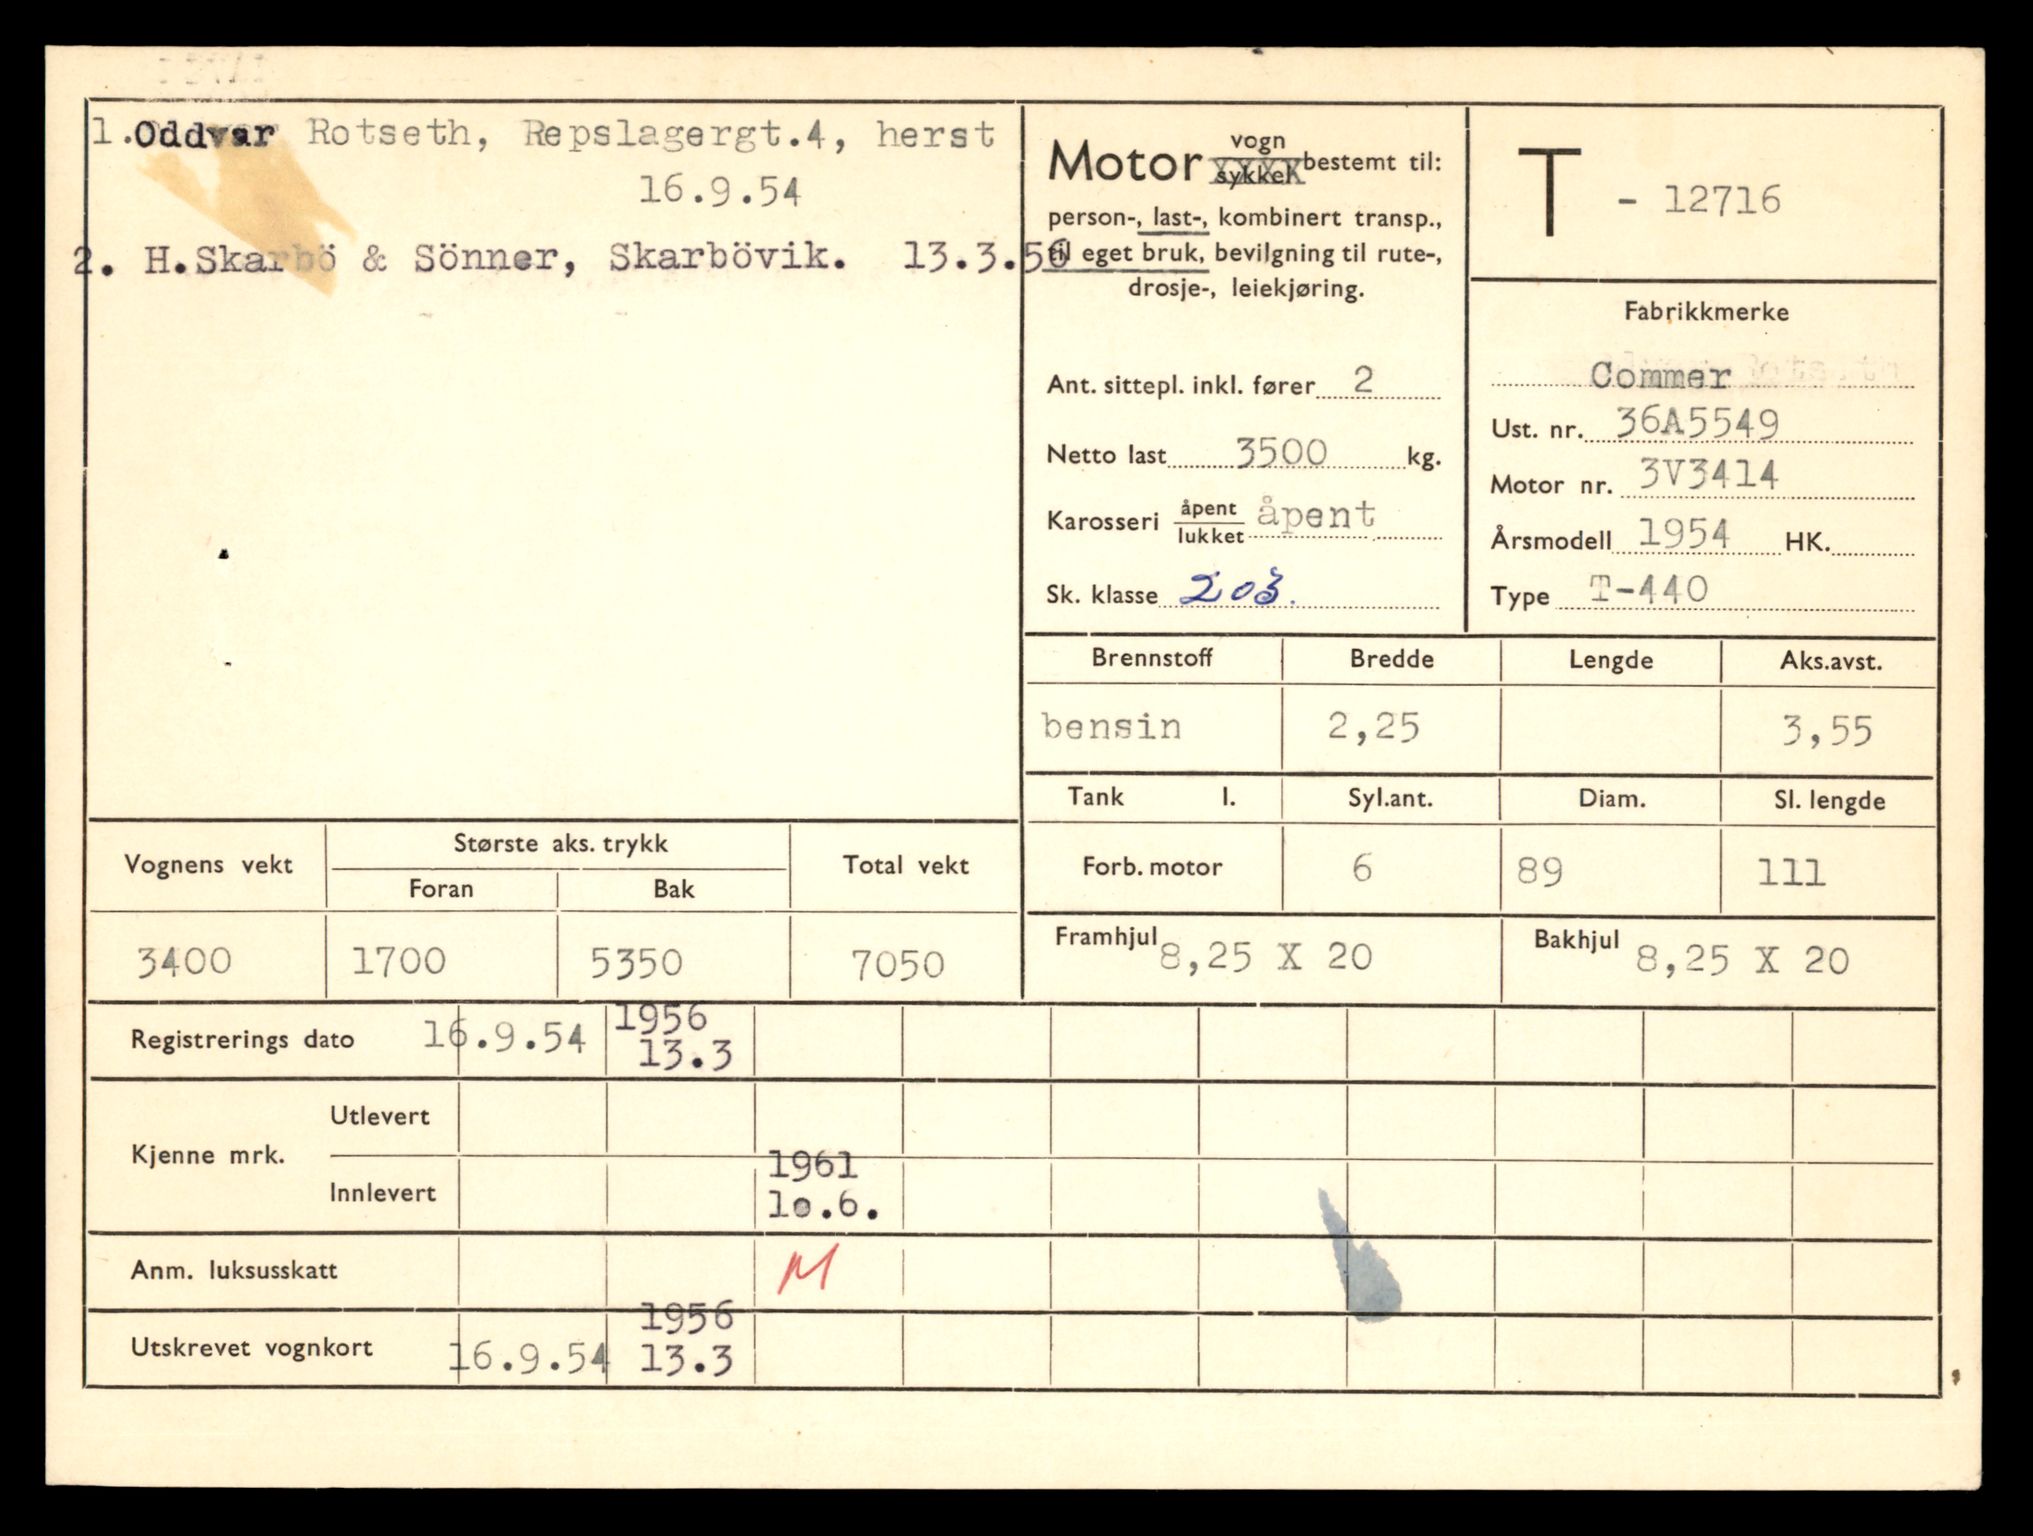 1.Oddvar Rotseth, Repslagergt.4, herst
16.9.54
2. H.Skarbö & Sönner, Skarbövik. 13.3.56
Motor vogn sykkel bestemt til:
person-, last-, kombinert transp.,
til eget bruk, bevilgning til rute-,
drosje-, leiekjøring.
Ant. sittepl. inkl. fører 2
Netto last 3500 kg.
Karosseri åpent lukket åpent
Sk. klasse 203.
T - 12716
Fabrikkmerke
Commer
Ust. nr. 36A5549
Motor nr. 3V3414
Årsmodell 1954 HK.
Type T-440
Brennstoff Bredde Lengde Aks.avst.
bensin 2,25 3,55
Tank l. Syl.ant. Diam. Sl. lengde
Forb. motor 6 89 111
Framhjul 8,25 X 20 Bakhjul 8,25 X 20
Vognens vekt Største aks. trykk Total vekt
Foran Bak
3400 1700 5350 7050
Registrerings dato 16.9.54 1956 13.3
Kjenne mrk. Utlevert
Innlevert 1961 10.6.
Anm. luksusskatt M
Utskrevet vognkort 16.9.54 1956 13.3